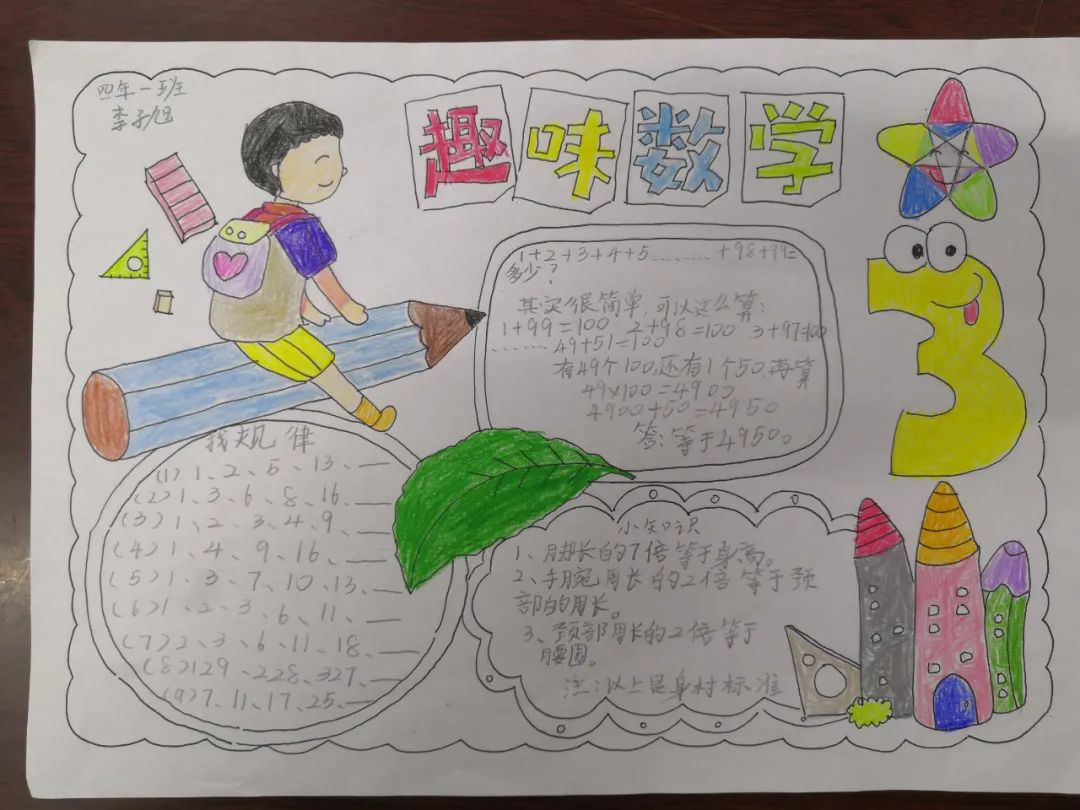 四年一班
李子旭
趣味数学
1+2+3+4+5………+98+99=
多少?
其实很简单,可以这么算:
1+99=100 2+98=100 3+97=100
……49+51=100
有49个100,还有1个50,再算
49×100=4900
4900+50=4950
答:等于4950。
找规律
(1)1、2、5、13、__
(2)1、3、6、8、16、__
(3)1、2、3、4、9、__
(4)1、4、9、16、__
(5)1、3、7、10、13、__
(6)1、2、3、6、11、__
(7)2、3、6、11、18、__
(8)129、228、327、__
(9)7、11、17、25、__
小知识
1、脚长的7倍等于身高。
2、手腕周长的2倍等于颈
部的周长。
3、颈部周长的2倍等于
腰围。
注:以上是身材标准
3